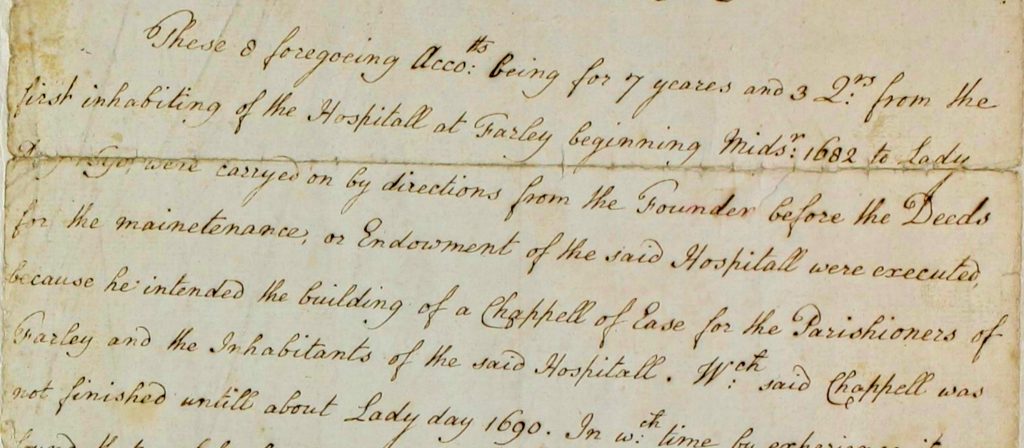 These 8 foregoeing Acco:ts being for 7 yeares and 3 Q:rs from the
first inhabiting of the Hospitall at Farley beginning Mids:r 1682 to Lady
Day were carryed on by directions from the Founder before the Deeds
for the mainetenance, or Endowment of the said Hospitall were executed,
because he intended the building of a Chappell of Ease for the Parishioners of
Farley and the Inhabitants of the said Hospitall. W:ch said Chappell was
not finished untill about Lady day 1690. In w:ch time by experience
found